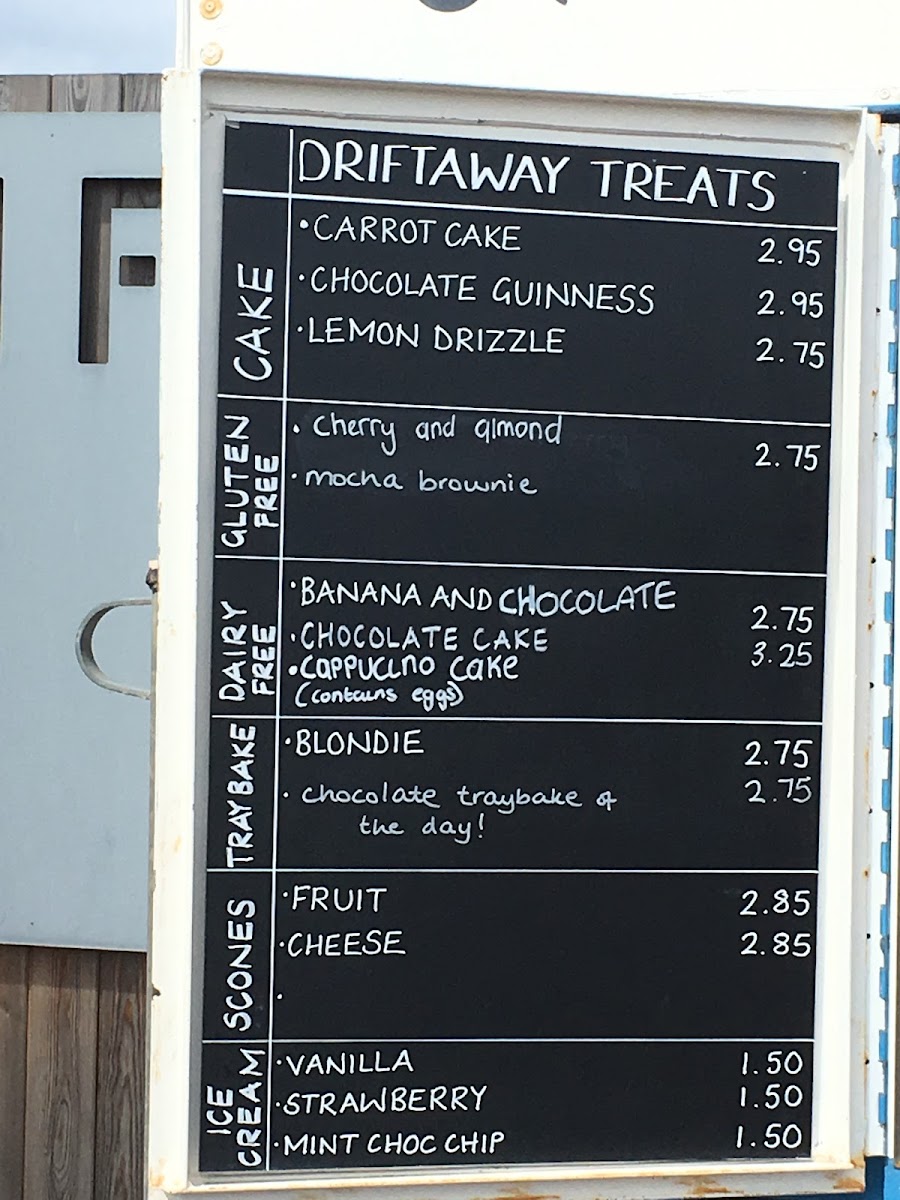 DRIFTAWAY TREATS
CAKE
·CARROT CAKE 2.95
·CHOCOLATE GUINNESS 2.95
·LEMON DRIZZLE 2.75
GLUTEN FREE
· cherry and almond 2.75
· mocha brownie
DAIRY FREE
·BANANA AND CHOCOLATE 2.75
·CHOCOLATE CAKE 3.25
·cappuccino cake
(contains eggs)
TRAYBAKE
·BLONDIE 2.75
· chocolate traybake of 2.75
the day!
SCONES
·FRUIT 2.85
·CHEESE 2.85
·
ICE CREAM
·VANILLA 1.50
·STRAWBERRY 1.50
·MINT CHOC CHIP 1.50